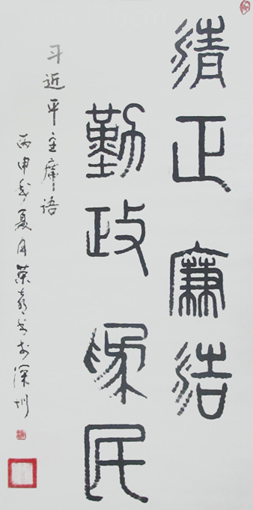 清正廉洁
勤政為民
习近平主席语
丙申岁夏月荣书于深圳